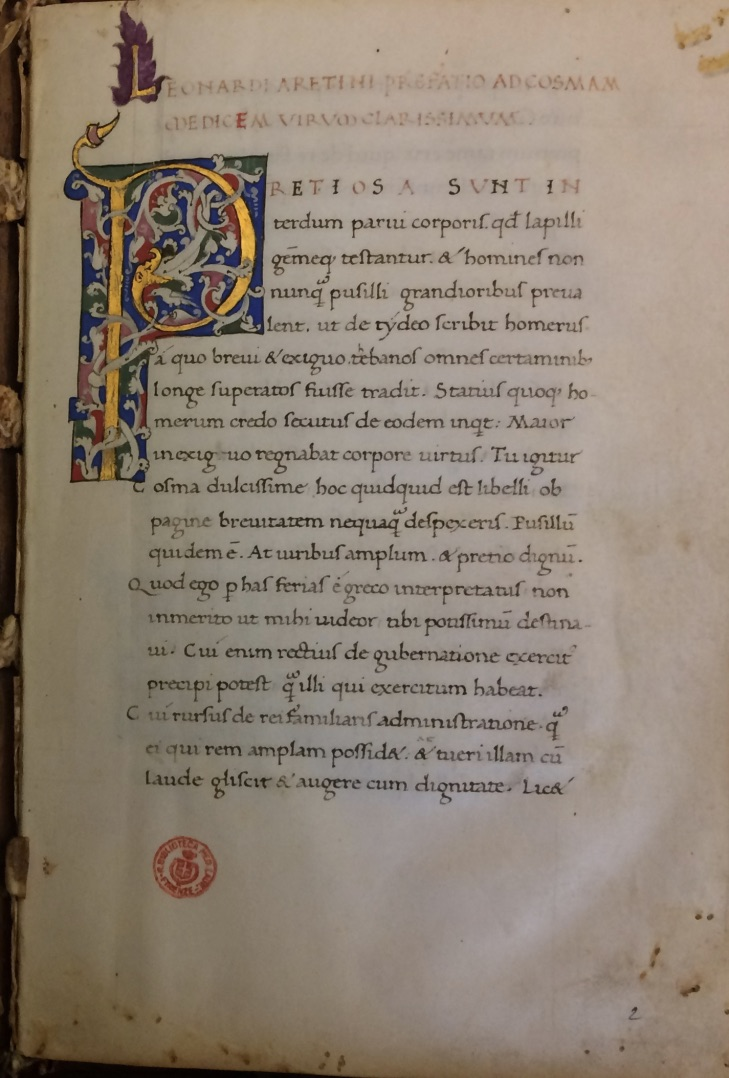 LEONARDI ARETINI PREFATIO AD COSMAM
MEDICEM VIRUM CLARISSIMUM
PRETIOSA SUNT IN
terdum parui corporis. qđ lapilli
gēmeq; testantur. & homines non
nunq̃ pusilli grandioribus preua
lent. ut de tydeo scribit homerus
a quo breui & exiguo. tebanos omnes certaminib;
longe superatos fuisse tradit. Statius quoq; ho-
merum credo secutus de eodem inqt: Maior
in exiguo regnabat corpore uirtus. Tu igitur
Cosma dulcissime hoc quidquid est libelli ob
pagine breuitatem nequaq̃ despexeris. Pusillū
quidem ē. At uiribus amplum. & pretio dignū.
Quod ego p has ferias e greco interpretatus non
inmerito ut mihi uideor tibi potissimū destina-
ui. Cui enim rectius de gubernatione exercit'
precipi potest q̃ illi qui exercitum habeat.
Cui rursus de rei familiaris administratione. q̃
ei qui rem amplam possid&. & tueri illam cū
laude gliscit & augere cum dignitate. Lic&
2